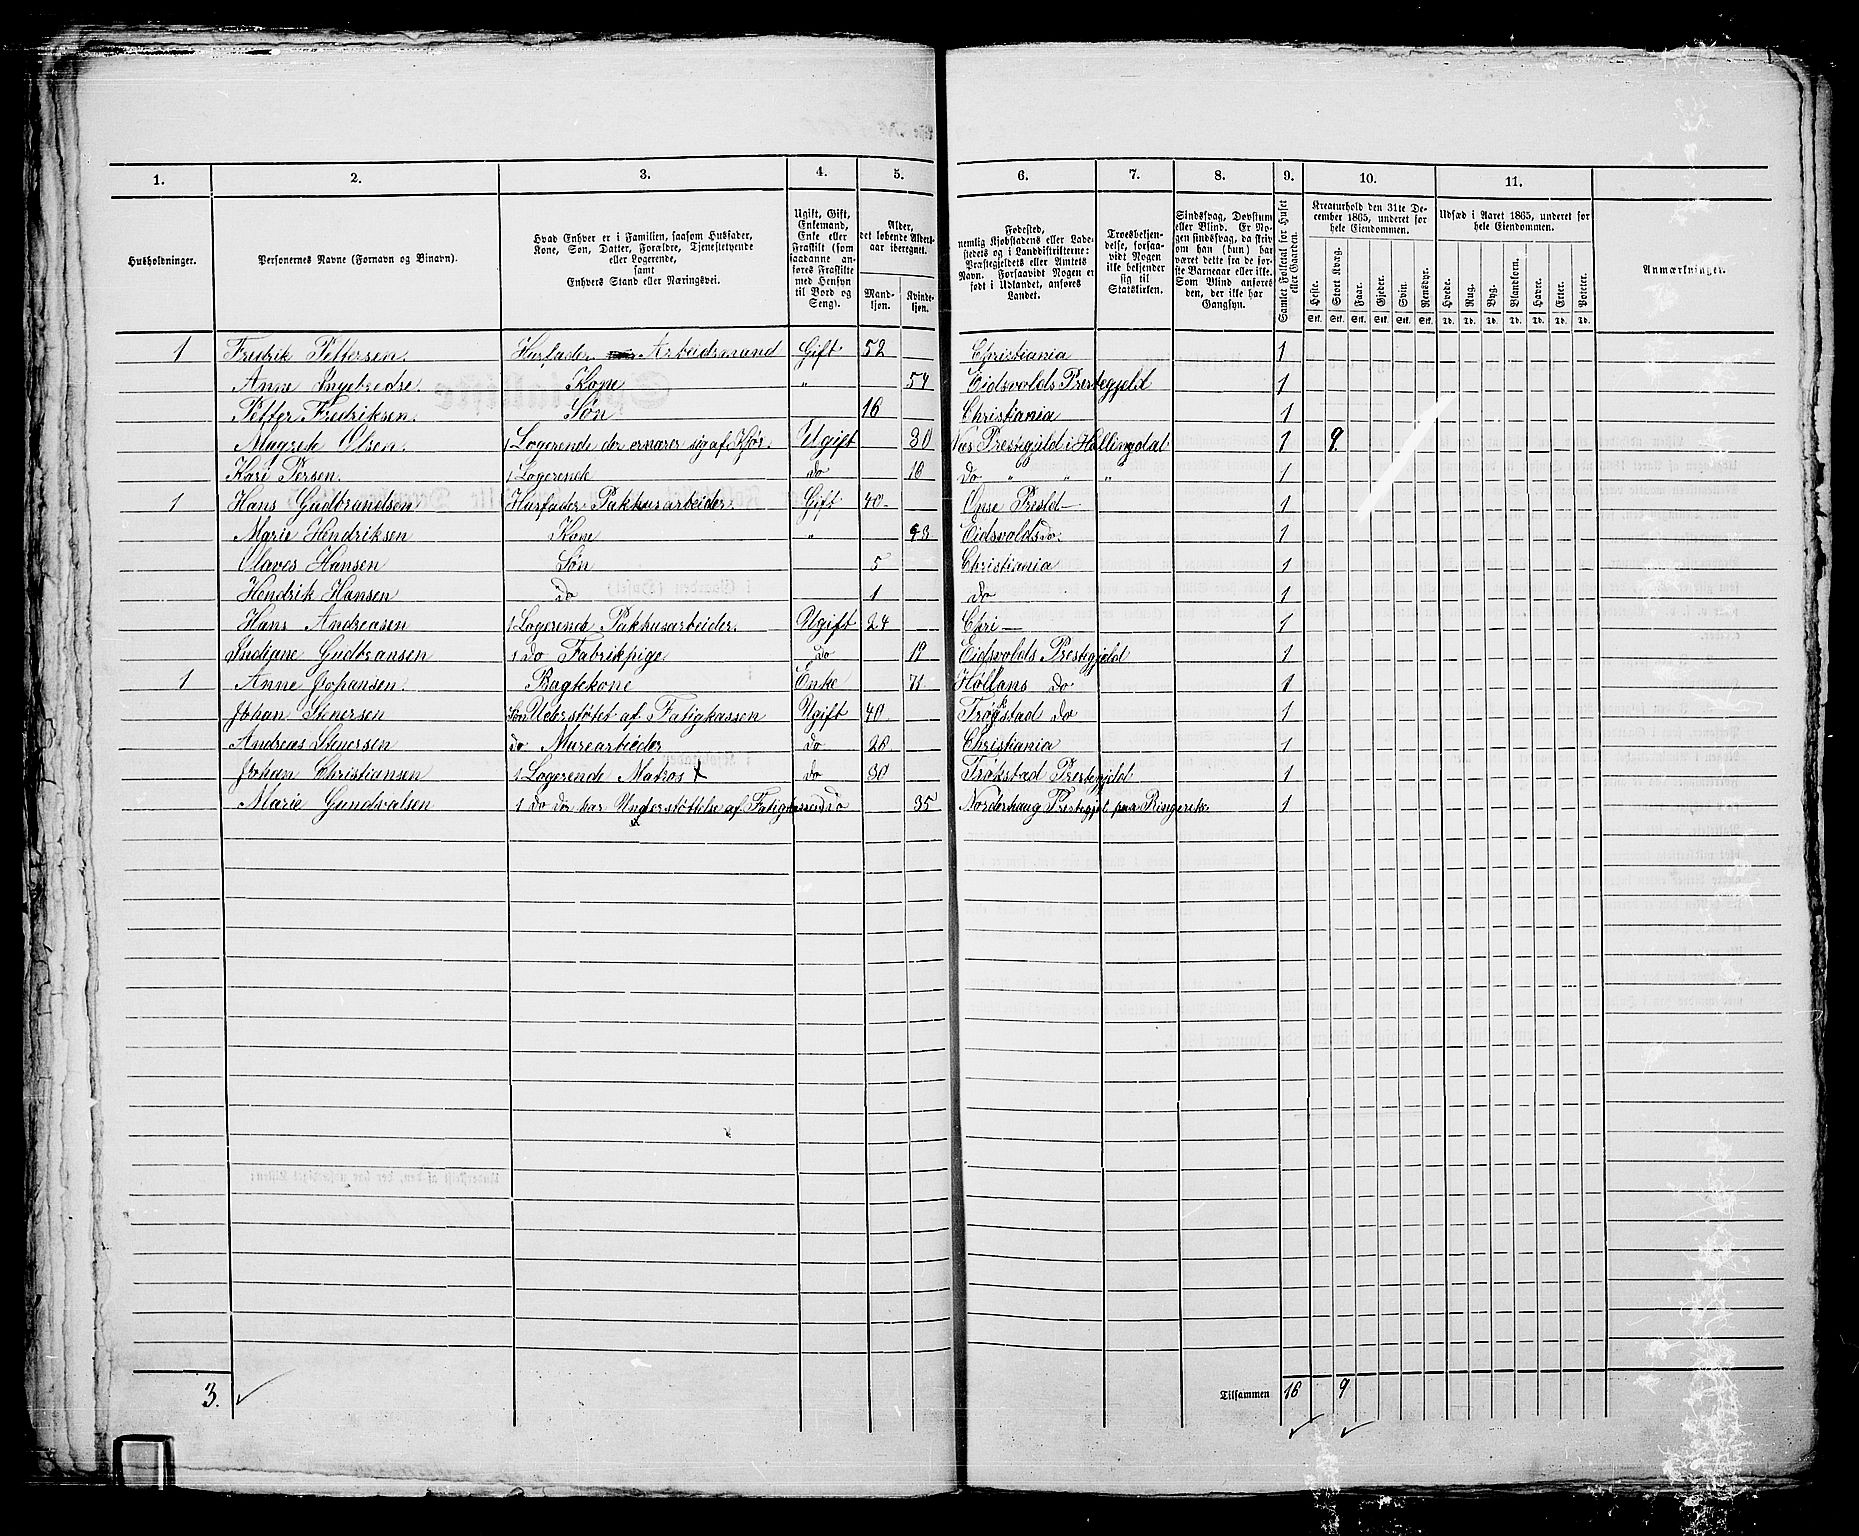 1. 2. 3. 4. 5. 6. 7. 8. 9. 10. 11.
Husholdninger.
Personernes Navne (Fornavn og Binavn).
Hvad Enhver er i Familien, saasom Husfader,
Kone, Søn, Datter, Forældre, Tjenestetyende
eller Logerende,
samt
Enhvers Stand eller Næringsvei.
Ugift, Gift,
Enkemand,
Enke eller
Fraskilt (som
saadanne an-
føres Fraskilte
med Hensyn
til Bord og
Seng).
Alder,
det løbende Alders-
aar iberegnet.
Mand-
kjøn.
Kvinde-
kjøn.
Fødested,
nemlig Kjøbstadens eller Lade-
stedets og i Landdistrikterne:
Præstegjeldets eller Amtets
Navn. Forsaavidt Nogen er
født i Udlandet, anføres
Landet.
Troesbekjen-
delse, forsaa-
vidt Nogen
ikke bekjender
sig til
Statskirken.
Sindssvag, Døvstum
eller Blind. Er No-
gen sindssvag, da skriv
om han (hun) har
været dette fra de før-
ste Barneaar eller ikke.
Som Blind anføres
den, der ikke har
Gangsyn.
Samlet Folketal for Huset
eller Gaarden.
Kreaturhold den 31te De-
cember 1865, underet for
hele Eiendommen.
Heste. Stort Kvæg. Faar. Gjeder. Svin. Rensdyr.
Stk. Stk. Stk. Stk. Stk. Stk.
Udsæd i Aaret 1865, underet for
hele Eiendommen.
Hvede. Rug. Byg. Blandkorn. Havre. Erter. Poteter.
Td. Td. Td. Td. Td. Td. Td.
Anmærkninger.
1 Fredrik Pettersen. Husfader Arbeidsmand Gift 52 Christiania 1
Anne Ingebredse. Kone " 54 Eidsvolds Prestegjeld 1
Petter Fredriksen. Søn 16 Christiania 1
Magrete Olsen. 1 Logerende der ernærer sig af Kjør. Ugift 30 Nes Prestegjeld i Hallingdal 1 9.
Kari Persen. 1 Logerende do 16 do " " " 1
1 Hans Gudbrandsen Husfader Pakhusarbeider. Gift 40 Presld 1
Marie Hendriksen Kone " Eidsvolds do. 1
Olaves Hansen Søn 5 Christiania 1
Hendrik Hansen do 1 do 1
Hans Andreasen 1 Logerende Pakhusarbeider. Ugift 24 Chri— 1
Indiane Gudbransen 1 do Fabrikpige. do 19 Eidsvolds Prestegjeld 1
1 Anne Johansen. Bagtekone Enke 71 Høllans do 1
Johan Stenersen Søn Uderstøtet af Fatigkassen Ugift 40 Trøgstad do 1
Andreas Stenersen do Murearbieder do 20 Christiania 1
Johan Christiansen 1 Logerende Matros do 30 Trøkstad Prestegjeld 1
Marie Gundvalsen 1 do der har Understøttelse af do 35 Norderhaug Prestegjel paa Ringerike. 1
3. Tilsammen 16 9